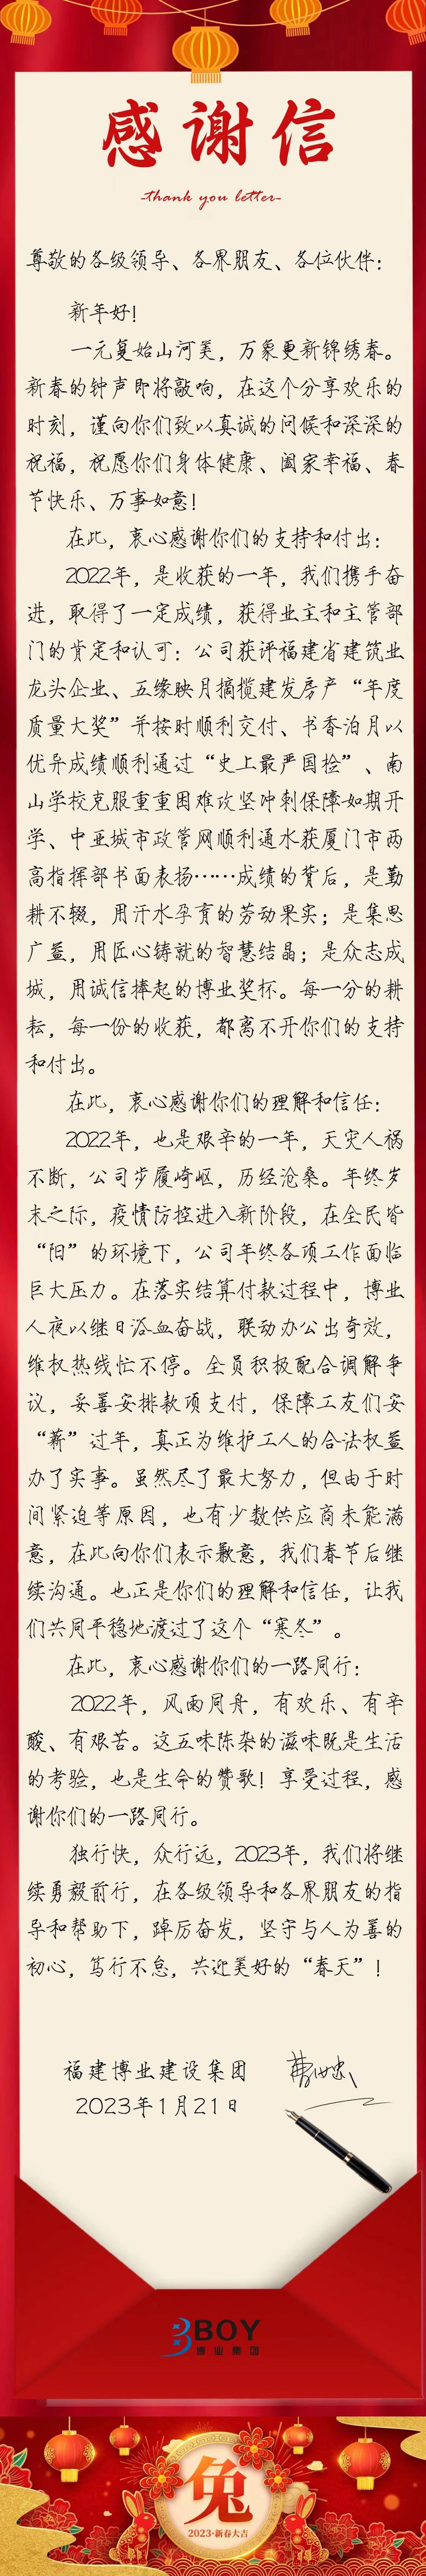 感谢信
-thank you letter-
尊敬的各级领导、各界朋友、各位伙伴：
新年好！
一元复始山河美，万象更新锦绣春。
新春的钟声即将敲响，在这个分享欢乐的
时刻，谨向你们致以真诚的问候和深深的
祝福，祝愿你们身体健康、阖家幸福、春
节快乐、万事如意！
在此，衷心感谢你们的支持和付出：
2022年，是收获的一年，我们携手奋
进，取得了一定成绩，获得业主和主管部
门的肯定和认可：公司获评福建省建筑业
龙头企业、五缘映月摘揽建发房产“年度
质量大奖”并按时顺利交付、书香泊月以
优异成绩顺利通过“史上最严国检”、南
山学校克服重重困难攻坚冲刺保障如期开
学、中亚城市政管网顺利通水获厦门市两
高指挥部书面表扬……成绩的背后，是勤
耕不辍，用汗水孕育的劳动果实；是集思
广益，用匠心铸就的智慧结晶；是众志成
城，用诚信捧起的博业奖杯。每一分的耕
耘，每一份的收获，都离不开你们的支持
和付出。
在此，衷心感谢你们的理解和信任：
2022年，也是艰辛的一年，天灾人祸
不断，公司步履崎岖，历经沧桑。年终岁
末之际，疫情防控进入新阶段，在全民皆
“阳”的环境下，公司年终各项工作面临
巨大压力。在落实结算付款过程中，博业
人夜以继日浴血奋战，联动办公出奇效，
维权热线忙不停。全员积极配合调解争
议，妥善安排款项支付，保障工友们安
“薪”过年，真正为维护工人的合法权益
办了实事。虽然尽了最大努力，但由于时
间紧迫等原因，也有少数供应商未能满
意，在此向你们表示歉意，我们春节后继
续沟通。也正是你们的理解和信任，让我
们共同平稳地渡过了这个“寒冬”。
在此，衷心感谢你们的一路同行：
2022年，风雨同舟，有欢乐、有辛
酸、有艰苦。这五味陈杂的滋味既是生活
的考验，也是生命的赞歌！享受过程，感
谢你们的一路同行。
独行快，众行远，2023年，我们将继
续勇毅前行，在各级领导和各界朋友的指
导和帮助下，踔厉奋发，坚守与人为善的
初心，笃行不怠，共迎美好的“春天”！
福建博业建设集团
2023年1月21日
BOY
博业集团
兔
2023·新春大吉